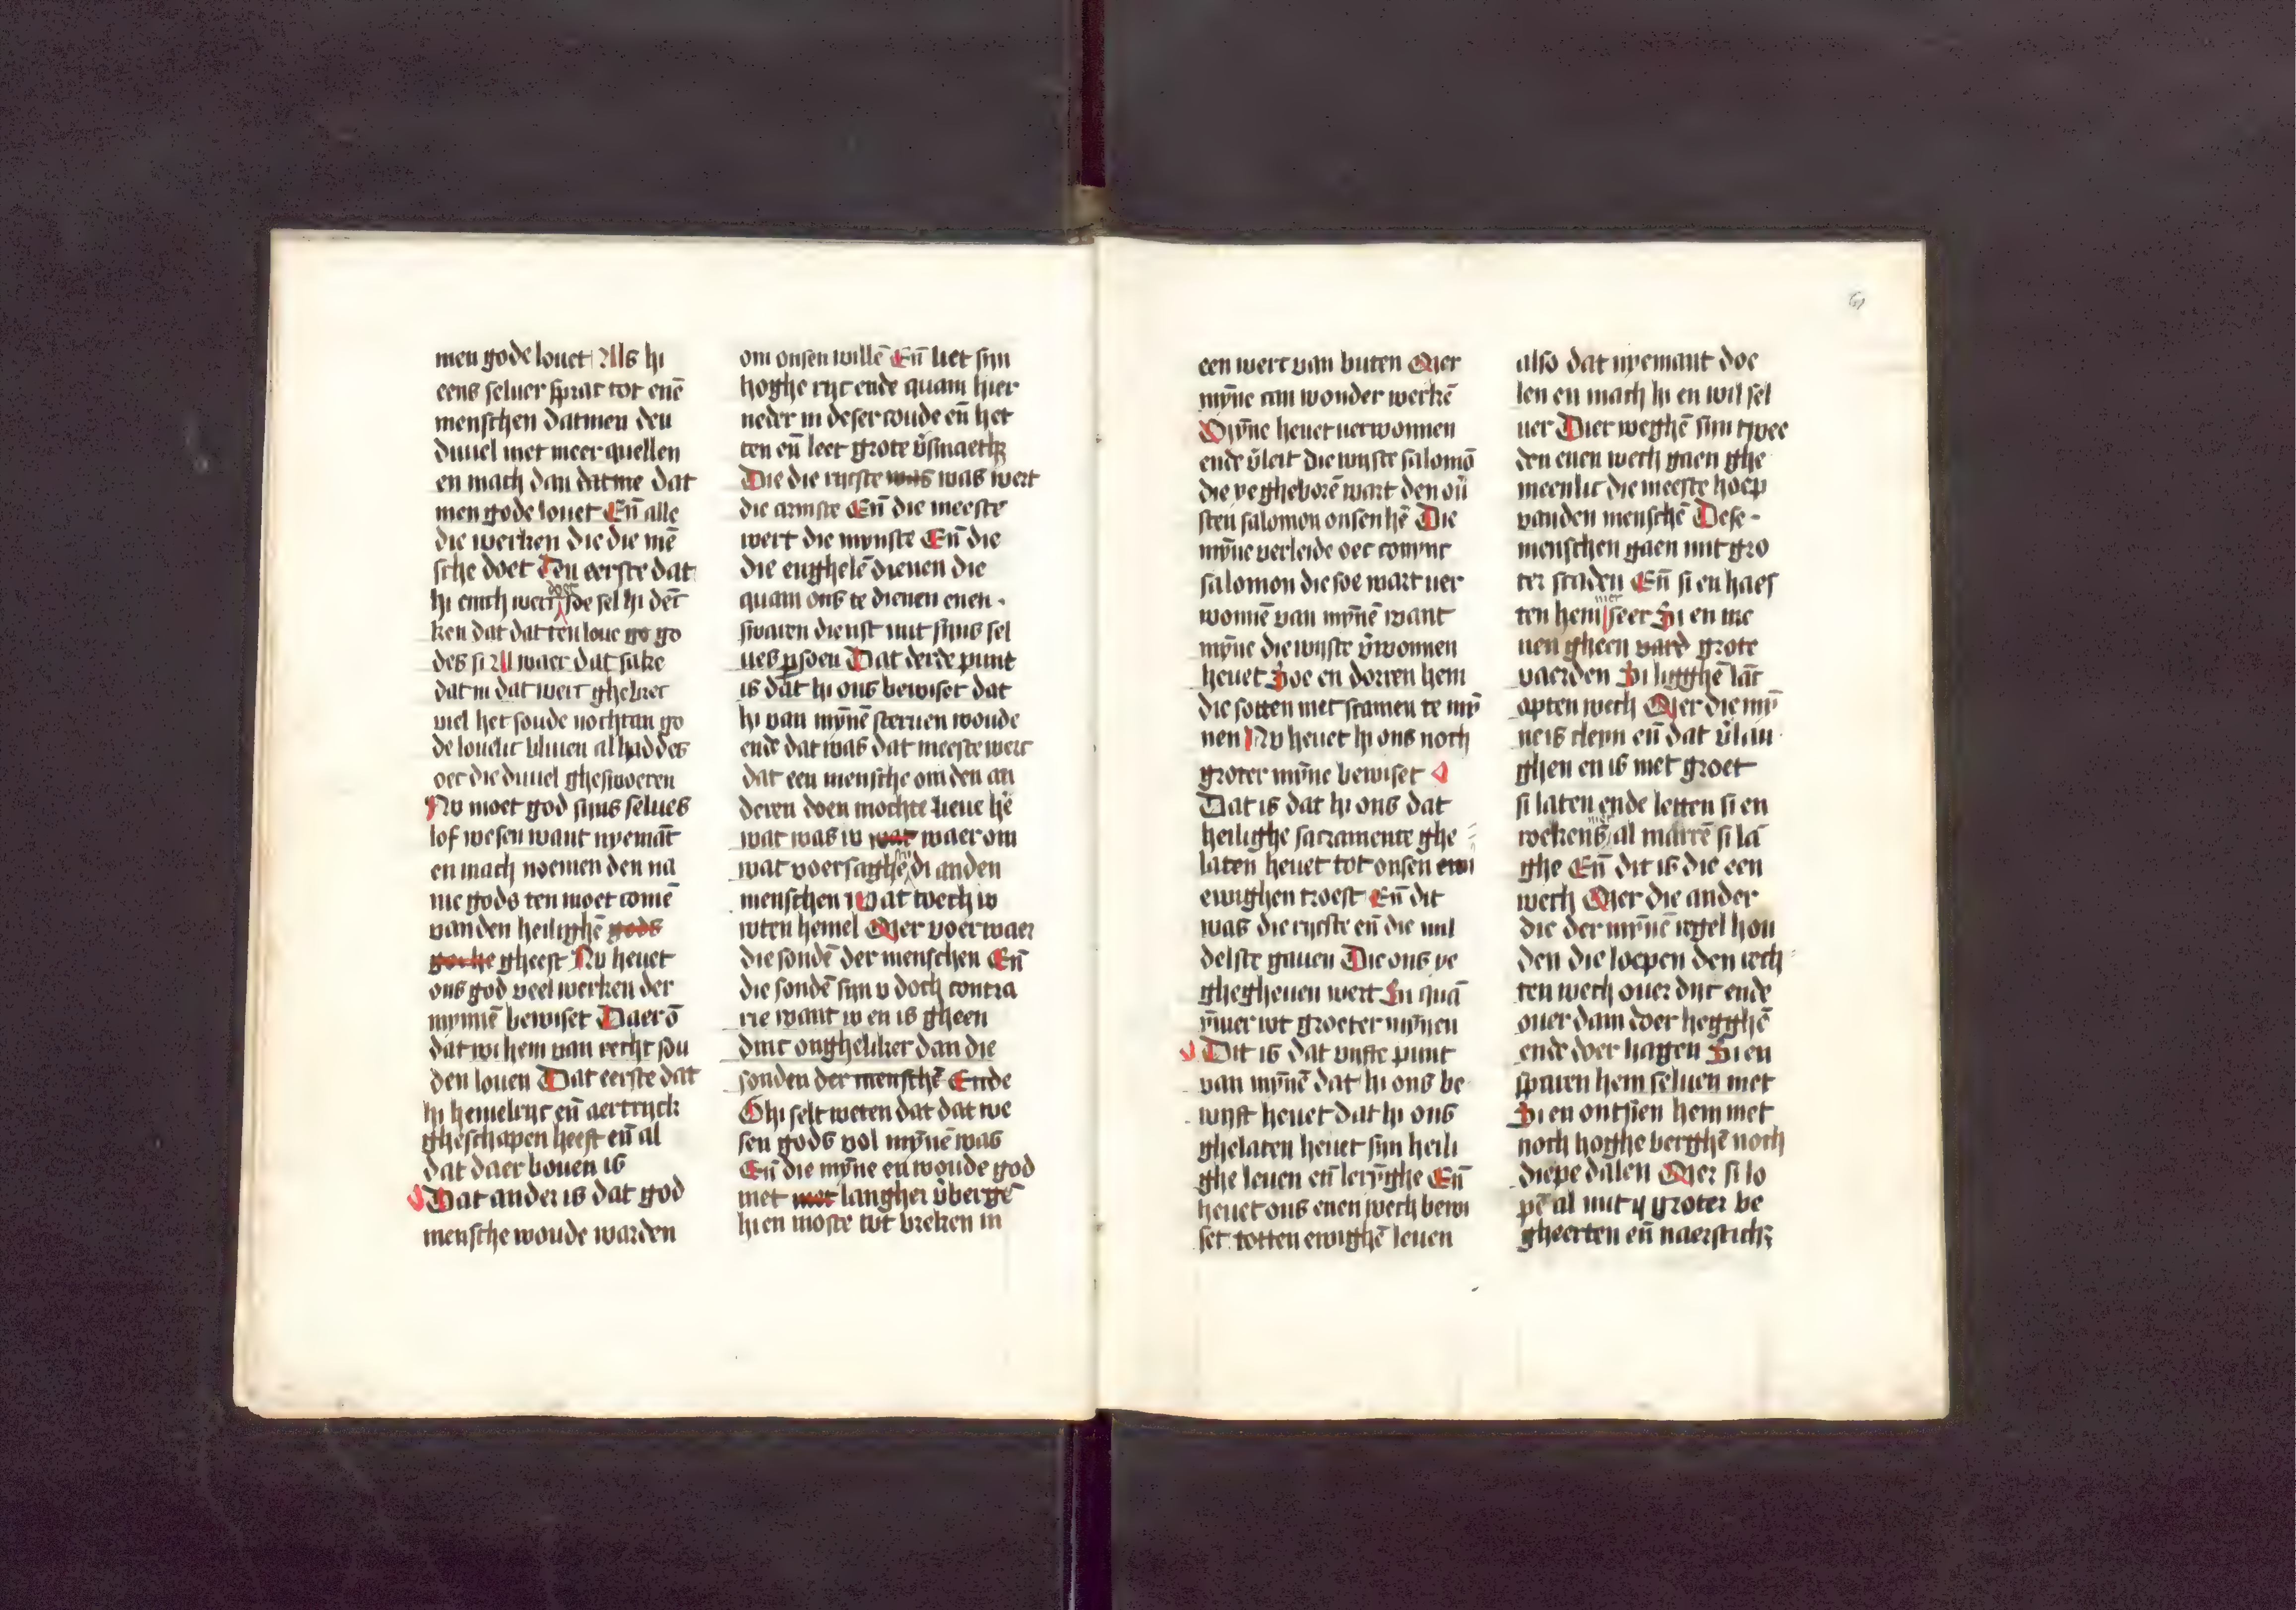 men gode louet Als hi
eens seluer sprac tot enē
menschen datmen den
duuel niet meer quellen
en mach dan datme dat
men gode louet Eñ alle
die werken die die mē
sche doet Ten eerste dat
hi enich werc doet soe sel hi dēc
ken dat dat ten loue go go
des si Al waer dat sake
dat in dat werc ghebrec
viel het soude nochtan go
de louelic bliuen al had des
oec die duuel ghesworen
Nv moet god sijns selues
lof wesen want nyemāt
en mach noemen den na
me gods ten moet comē
vanden heilighē gods
gheest Nv heuet
ons god veel werken der
mynnē bewiset Daerō
dat wi hem van recht sou
den louen Dat eerste dat
hi hemelryc eñ aertryck
gheschapen heeft eñ al
dat daer bouen is
Dat ander is dat god
mensche woude warden
om onsen willē Eñ liet syn
hoghe ryc ende quam hier
neder in deser coude eñ het
ten eñ leet grote v̄smaeth
Die die rycste was was wert
die armste Eñ die meeste
wert die mynste Eñ die
die enghelē dienen die
quam ons te dienen enen
swaren dienst mit sijns sel
ues psoen Dat derde punt
is dat hi ons bewiset dat
hi van mȳnē steruen woude
ende dat was dat meeste werc
dat een mensche om den an
deren doen mochte lieue hē
wat was v wat waer om
wat voersaghē di anden
menschen Wat toech v
wten hemel Mer voerwaer
die sondē der menschen Eñ
die sondē syn v doch contra
rie want v en is gheen
dinc ongheliker dan die
sonden der menschē Ende
Ghi selt weten dat dat we
sen gods vol mȳnē was
Eñ die mȳne en woude god
met met langher v̄bergē
hi en moste wt breken in
een werc van buten Mer
mȳne can wonder werkē
Mȳne heuet verwonnen
ende v̄leit die wyste salomō
die ye gheborē wart den ou
sten salomon onsen hē Die
mȳne verleide oec conync
salomon die soe wart ver
wonnē van mȳnē want
mȳne die wyste v̄wonnen
heuet Hoe en dorren hem
die sotten met scamen te mȳ
nen Nv heuet hi ons noch
groter mȳne bewiset
Dat is dat hi ons dat
heilighe sacramente ghe
laten heuet tot onsen ewi
ewighen troest Eñ dit
was die rycste eñ die mil
delste gauen Die ons ye
ghegheuen wert In quā
nȳmer wt groeter mȳnen
Dit is dat vyfte punt
van mȳnē dat hi ons be
wyst heuet dat hi ons
ghelaten heuet syn heili
ghe leuen eñ lerȳghe Eñ
heuet ons enen wech bewi
set totten ewighē leuen
also dat nyemant doe
len en mach hi en wil sel
uer Dier weghē sijn twee
den enen wech gaen ghe
meenlic die meeste hoep
vanden menschē Dese
menschen gaen mit gro
ter staden Eñ si en haes
ten hem niet seer Si en ne
uen gheen vard grote
vaerden Si ligghē lāc
opten wech Mer die mȳ
ne is cleyn eñ dat v̄lan
ghen en is niet groet
si laten ende letten si en
roekens niet al marrē si lā
ghe Eñ dit is die een
wech Mer die ander
die der mȳnē regel hou
den die loepen den rech
ten wech ouer dijc ende
ouer dam doer hegghē
ende doer hagen Si en
sparen hem seluen niet
Si en ontsien hem niet
noch hoghe berghē noch
diepe dalen Mer si lo
pē al mit groter be
gheerten eñ naersticħ